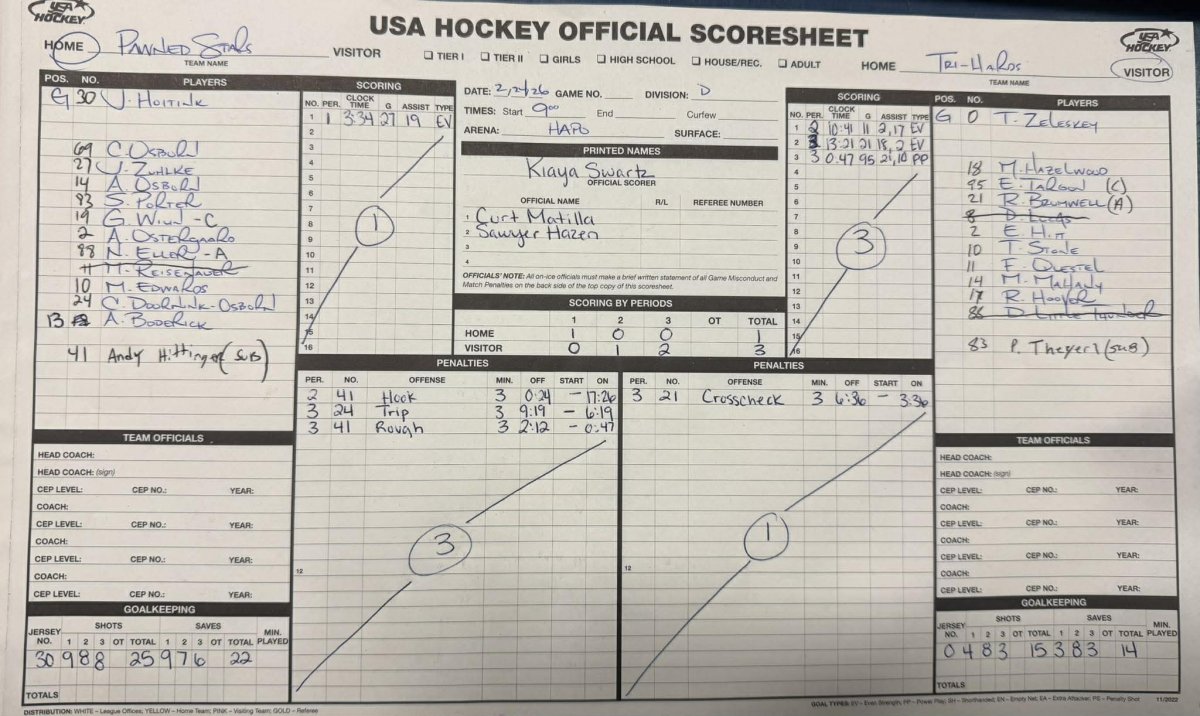 USA HOCKEY
USA HOCKEY OFFICIAL SCORESHEET
USA HOCKEY
HOME Pawned Stars VISITOR
TEAM NAME
☐ TIER I ☐ TIER II ☐ GIRLS ☐ HIGH SCHOOL ☐ HOUSE/REC. ☐ ADULT
HOME Tri-Hards VISITOR
TEAM NAME
POS. NO. PLAYERS
G 30 J. Hoitink
69 C. Osburn
27 J. Zuhlke
14 A. Osburn
83 S. Porter
19 G. Winn - C
2 A. Ostergaard
88 N. Eller - A
11 M. Reisenauer
10 M. Edwards
24 C. Doornink-Osburn
13 A. Boderick
41 Andy Hittinger (SUB)
SCORING
NO. PER. CLOCK TIME G ASSIST TYPE
1 1 3:34 27 19 EV
2
3
4
5
6
7
8
9
10
11
12
13
14
15
16
1
DATE: 2/21/26 GAME NO. DIVISION: D
TIMES: Start 9:00 End Curfew
ARENA: HAPO SURFACE:
PRINTED NAMES
Kiaya Swartz
OFFICIAL SCORER
OFFICIAL NAME R/L REFEREE NUMBER
1 Curt Matilla
2 Sawyer Hazen
3
4
OFFICIALS' NOTE: All on-ice officials must make a brief written statement of all Game Misconduct and
Match Penalties on the back side of the top copy of this scoresheet.
SCORING BY PERIODS
1 2 3 OT TOTAL
HOME 1 0 0 1
VISITOR 0 1 2 3
SCORING
NO. PER. CLOCK TIME G ASSIST TYPE
1 2 10:41 11 2,17 EV
2 3 13:21 21 18,2 EV
3 3 0:47 95 21,10 PP
4
5
6
7
8
9
10
11
12
13
14
15
16
3
POS. NO. PLAYERS
G 0 T. Zeleskey
18 M. Hazelwood
95 E. Targon (C)
21 R. Brumwell (A)
8 D. Lucas
2 E. Hitt
10 T. Stone
11 F. Questel
14 M. Mahany
17 R. Hoover
86 D. Little Thunder
83 P. (SUB)
PENALTIES
PER. NO. OFFENSE MIN. OFF START ON
2 41 Hook 3 0:24 - 17:26
3 24 Trip 3 9:19 - 6:19
3 41 Rough 3 2:12 - 0:47
12
3
PENALTIES
PER. NO. OFFENSE MIN. OFF START ON
3 21 Crosscheck 3 6:36 - 3:36
12
1
TEAM OFFICIALS
HEAD COACH:
HEAD COACH: (sign)
CEP LEVEL: CEP NO.: YEAR:
COACH:
CEP LEVEL: CEP NO.: YEAR:
COACH:
CEP LEVEL: CEP NO.: YEAR:
COACH:
CEP LEVEL: CEP NO.: YEAR:
GOALKEEPING
JERSEY NO. SHOTS 1 2 3 OT TOTAL SAVES 1 2 3 OT TOTAL MIN. PLAYED
30 9 8 8 25 9 7 6 22
TOTALS
TEAM OFFICIALS
HEAD COACH:
HEAD COACH: (sign)
CEP LEVEL: CEP NO.: YEAR:
COACH:
CEP LEVEL: CEP NO.: YEAR:
COACH:
CEP LEVEL: CEP NO.: YEAR:
COACH:
CEP LEVEL: CEP NO.: YEAR:
GOALKEEPING
JERSEY NO. SHOTS 1 2 3 OT TOTAL SAVES 1 2 3 OT TOTAL MIN. PLAYED
0 4 8 3 15 3 8 3 14
TOTALS
DISTRIBUTION: WHITE – League Offices; YELLOW – Home Team; PINK – Visiting Team; GOLD – Referee
GOAL TYPES: EV – Even Strength; PP – Power Play; SH – Shorthanded; EN – Empty Net; EA – Extra Attacker; PS – Penalty Shot 11/2022